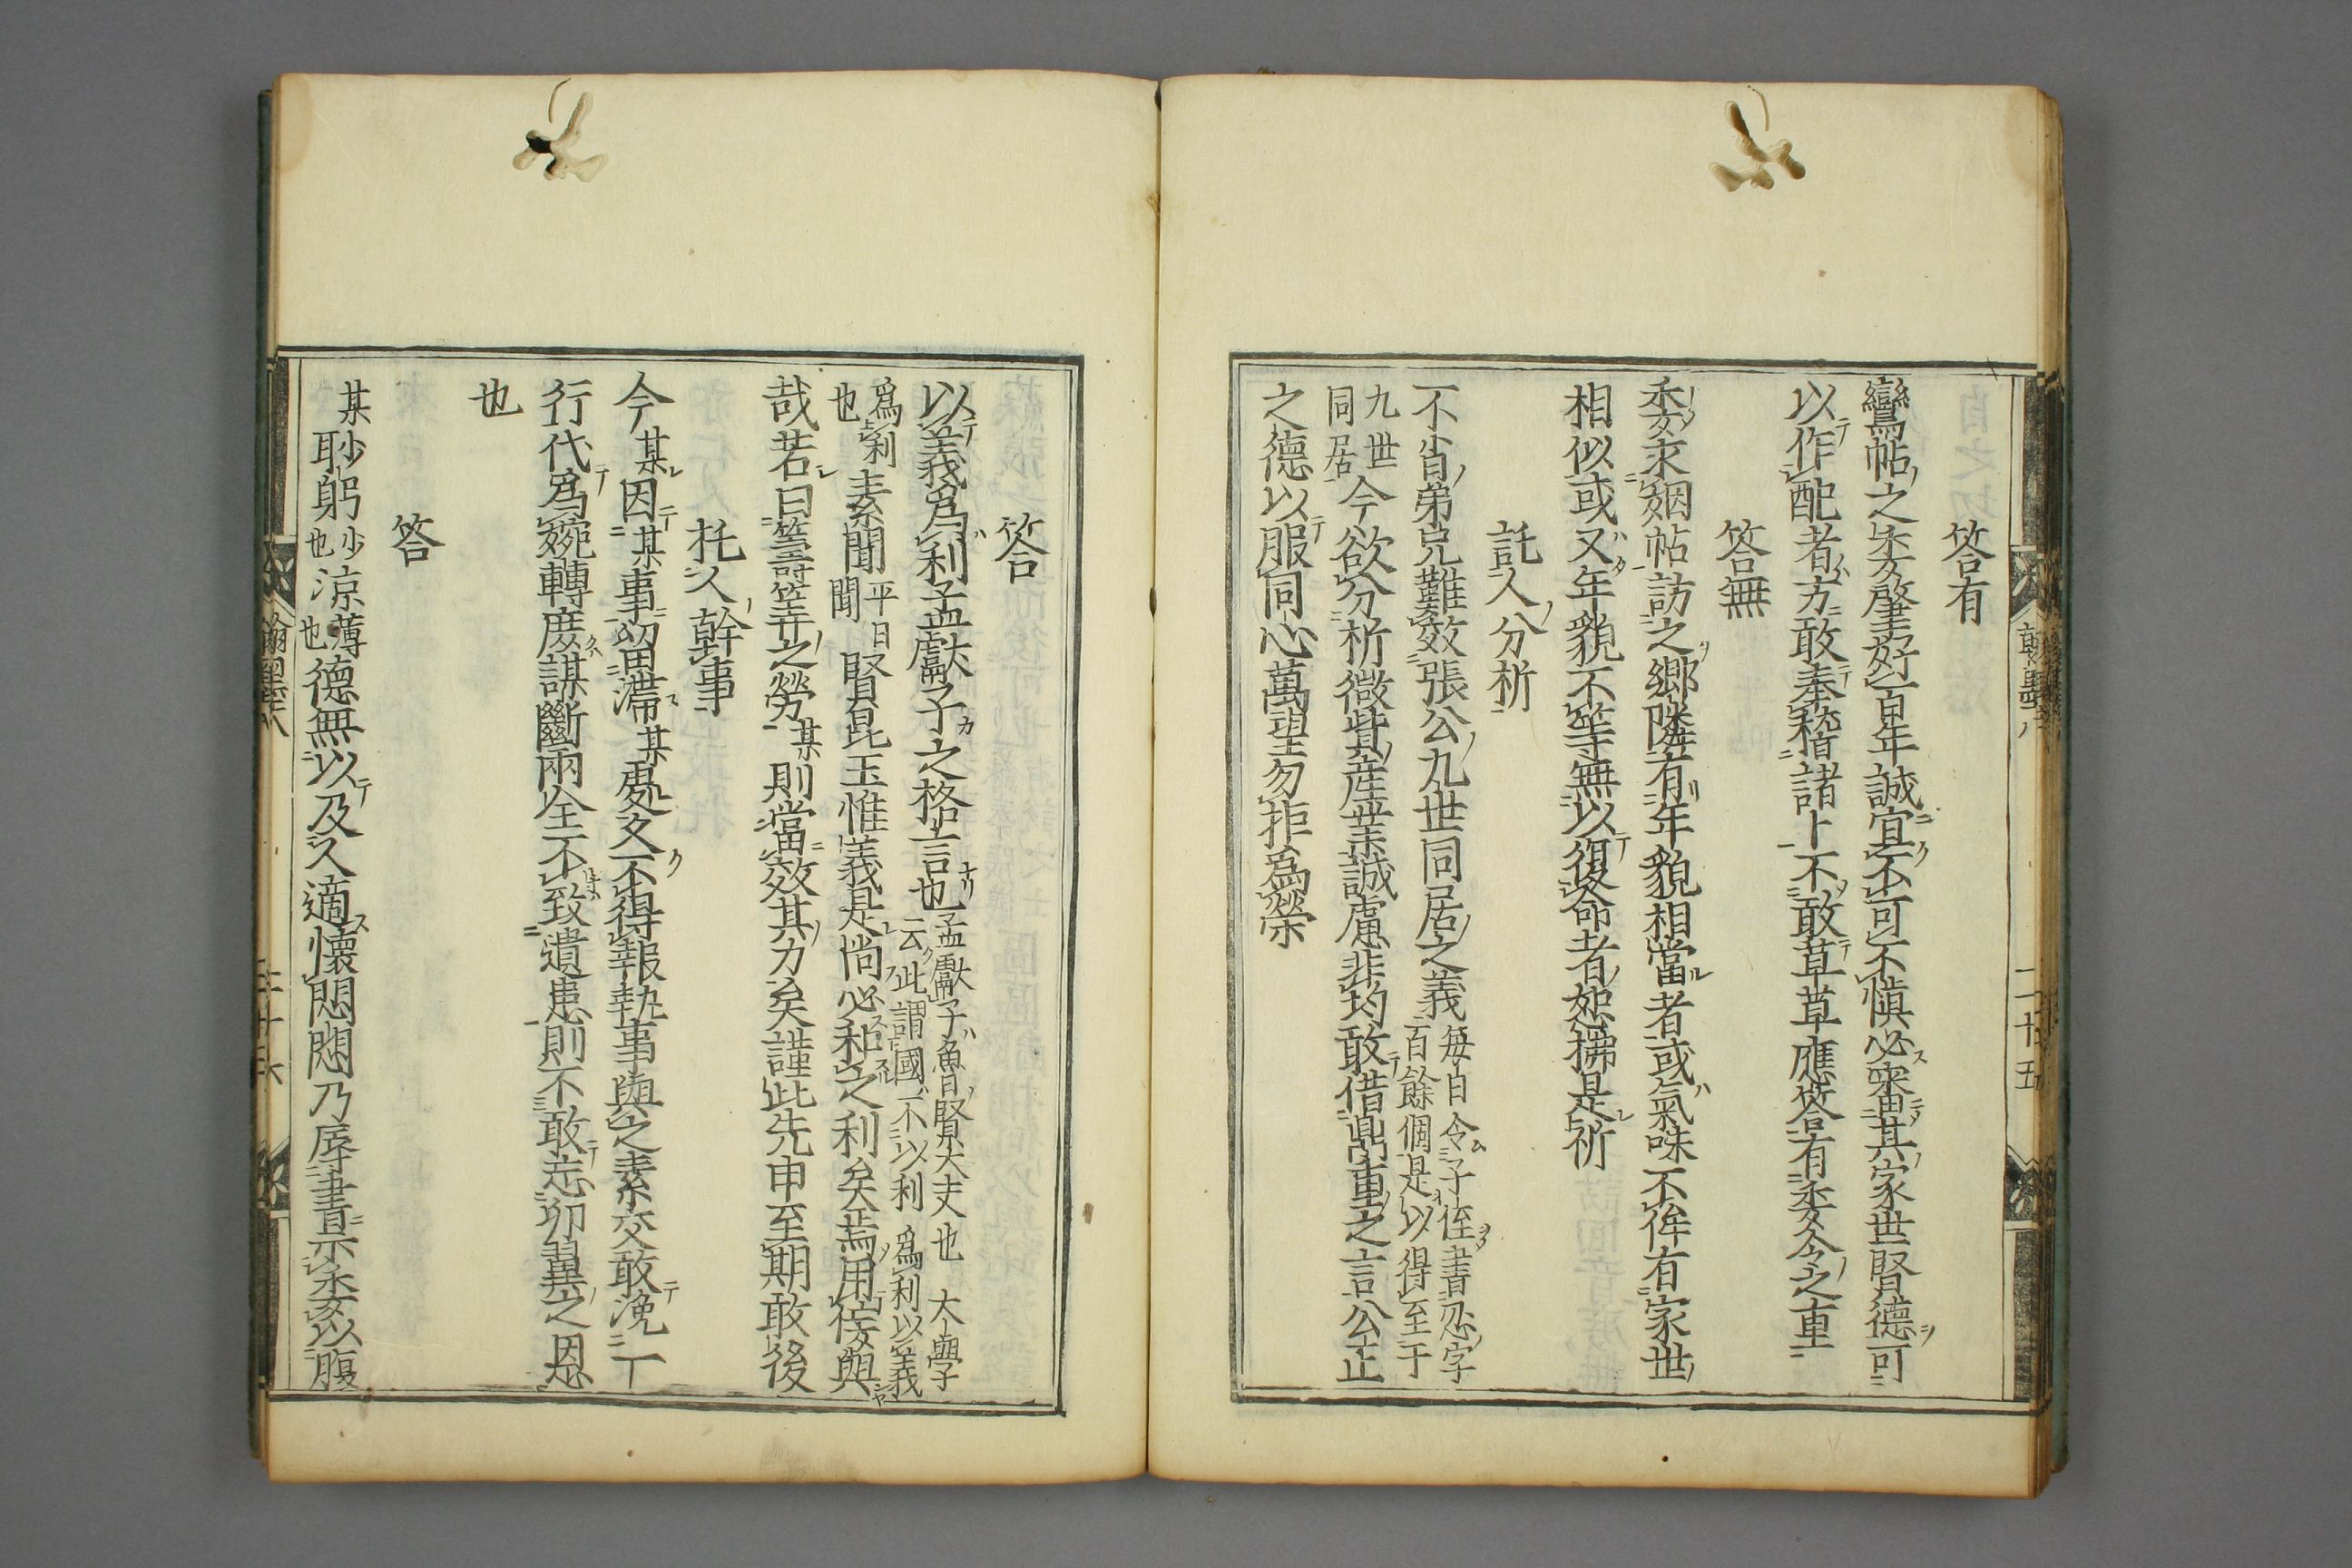 答有
鸞帖之委肇好百年誠宜不可不愼必審其家世賢德可
以作配者方敢奉稽諸卜不敢草草應答有委今之重
答無
委求姻帖訪之鄉隣有年貌相當者或氣味不侔有家世
相似或又年貌不等無以復命者恕拂是祈
託人分析
不肖弟兄難效張公九世同居之義每自令子侄書忍字百餘個是以得至于
九世同居今欲分析微貲産業誠慮非均敢借鼎重之言公正
之德以服同心萬望勿拒爲榮
翰墨八
二十五
答
以義爲利孟獻子之格言也孟獻子魯賢大夫也大學云此謂國不以利爲利以義
爲利也素聞平日聞賢昆玉惟義是尚必和之利矣焉用傍與
哉若曰籌筭之勞某則當效其力矣謹此先申至期敢後
托人幹事
今某因某事留滯某處久不得報執事與之素交敢浼一
行代爲婉轉度謀斷兩全不致遺患則不敢忘卵翼之恩
也
答
某眇躬少也涼薄也德無以及人適懷悶悶乃辱書示委以腹
翰墨八
二十六